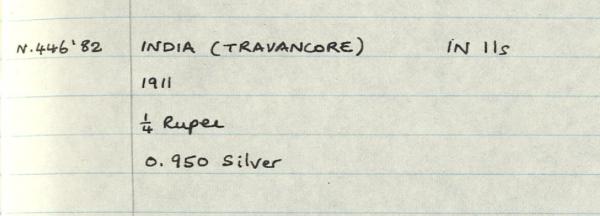 N.446'82 INDIA (TRAVANCORE) IN 11s
1911
¼ Rupee
0.950 Silver